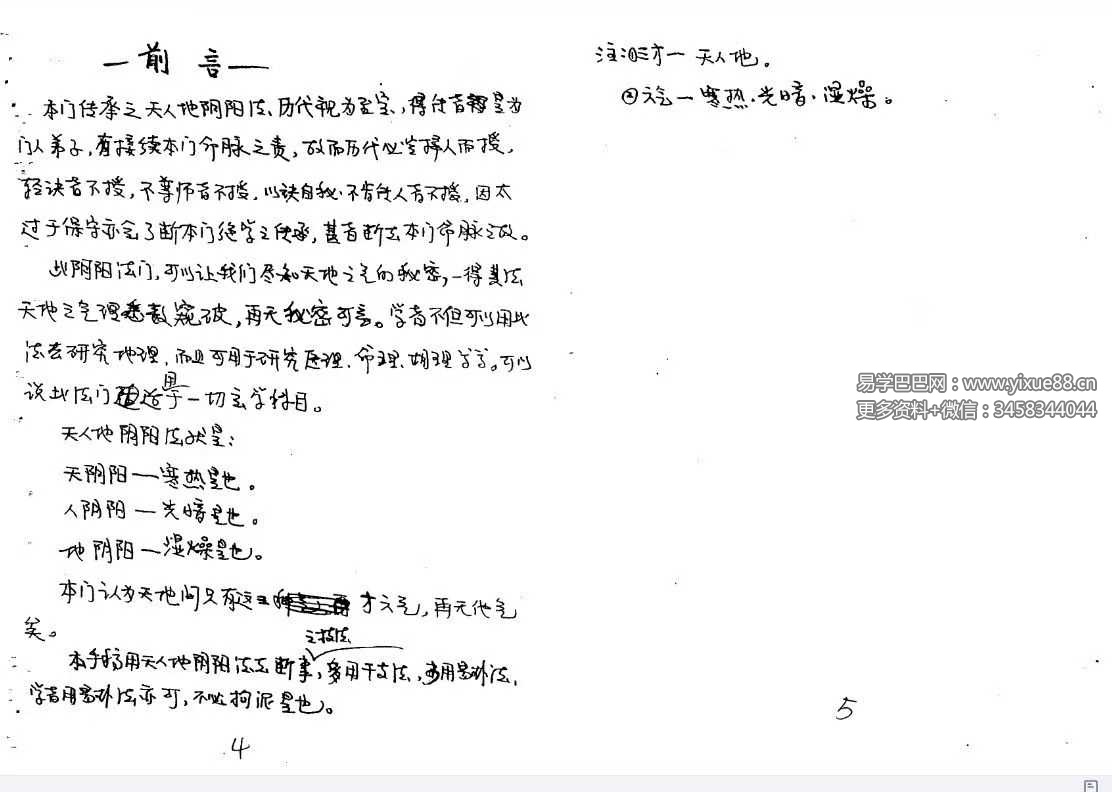 —前言—
本门传承之天人地阴阳法,历代视为至宝,得传者都是为
门人弟子,有接续本门命脉之责,故而历代必当择人而授,
轻诀者不授,不尊师者不授,以诀自秘、不肯传人者不授,因太
过于保守亦会了断本门绝学之传承,甚者断去本门命脉之故。
此阴阳法门,可以让我们尽知天地之气的秘密,一得其法
天地之气理悉数窥破,再无秘密可言。学者不但可以用此
法去研究地理,而且可用于研究医理、命理、相理等等。可以
说此法门适用于一切玄学科目。
天人地阴阳法就是:
天阴阳—寒热是也。
人阴阳—光暗是也。
地阴阳—湿燥是也。
本门认为天地间只有这三才六气,再无他气
矣。
本手稿用天人地阴阳法去断事之技法,多用干支法,少用易卦法,
学者用易卦法亦可,不必拘泥是也。
4
注:①三才—天人地。
②六气—寒热、光暗、湿燥。
易学巴巴网:www.yixue88.cn
更多资料+微信:3458344044
5